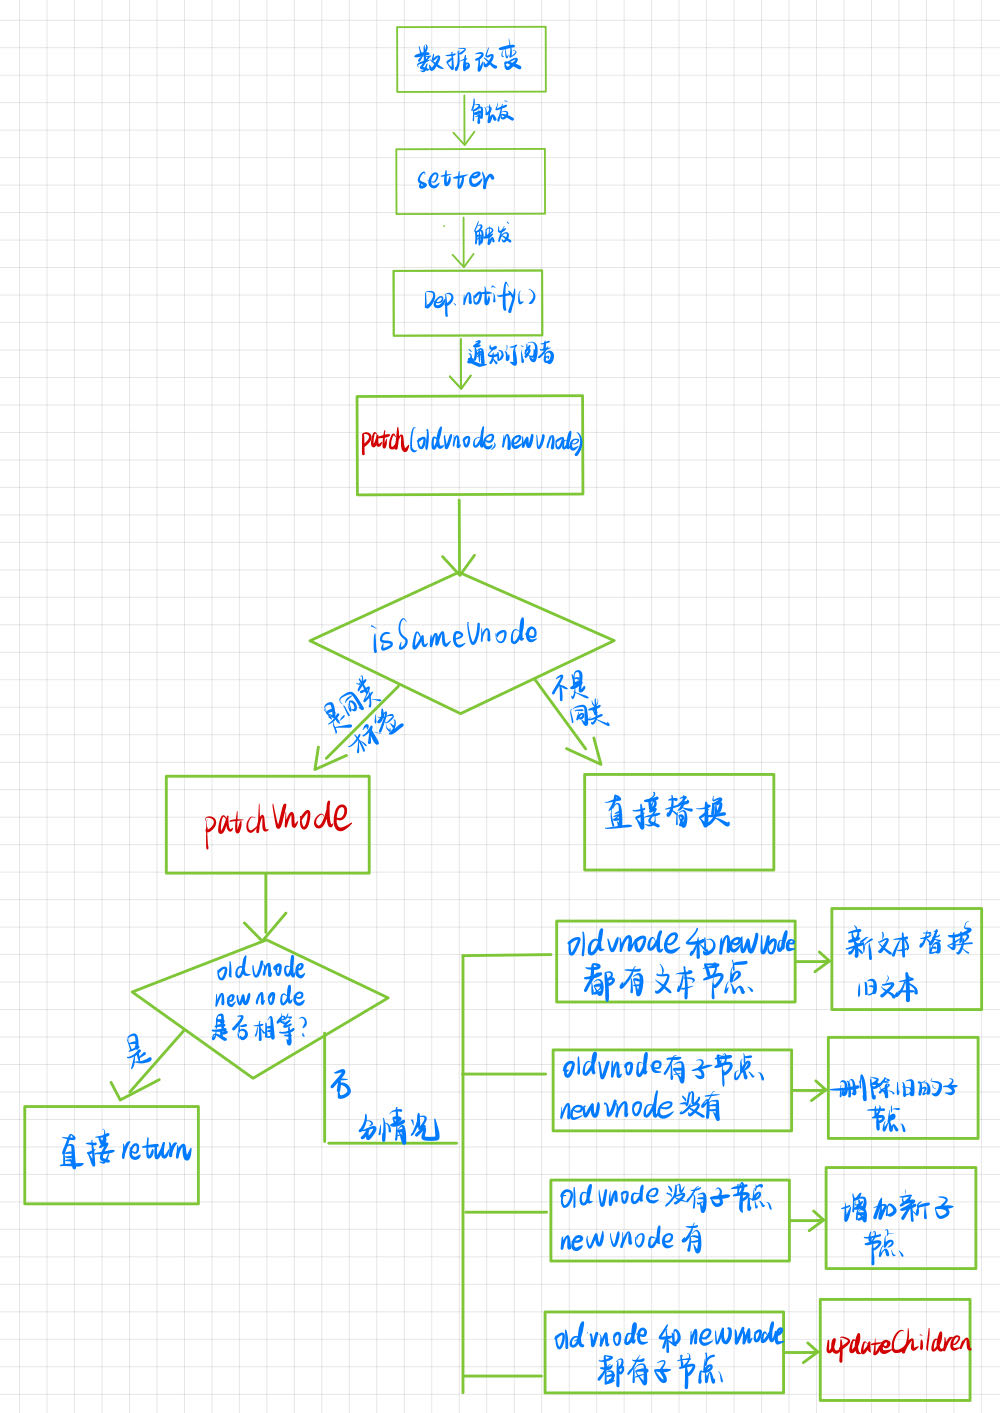 数据改变
触发
setter
触发
Dep.notify()
通知订阅者
patch(oldvnode, newvnode)
isSameVnode
是同类
标签
不是
同类
patchVnode
直接替换
oldvnode
newnode
是否相等?
是
直接return
否
分情况
oldvnode和newvnode
都有文本节点
新文本替换
旧文本
oldvnode有子节点
newvnode没有
删除旧的子
节点
oldvnode没有子节点
newvnode有
增加新子
节点
oldvnode和newvnode
都有子节点
updateChildren